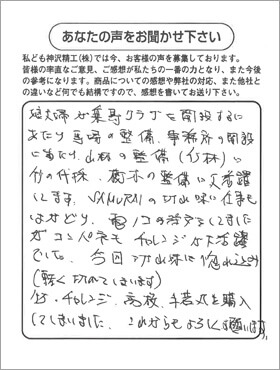 あなたの声をお聞かせ下さい
私ども神沢精工(株)では今、お客様の声を募集しております。
皆様の率直なご意見、ご感想が私たちの一番の力となり、また今後
の参考になります。商品についての感想や弊社の対応、また他社と
の違いなど何でも結構ですので、感想を書いてお送り下さい。
娘夫婦が乗馬クラブを開設するに
あたり馬場の整備、事務所の開設
にあたり、山林の整備(竹林)に
竹の伐採、樹木の整備に大活躍
してます。SAMURAIの切れ味に仕事も
はかどり、電ノコの
がコンパネもチャレンジが大活躍
でした。今回 切れ味に惚れ込み
(軽く切れてしまいます)
竹・チャレンジ、高枝、を購入
してしまいました。これからもよろしくお願います